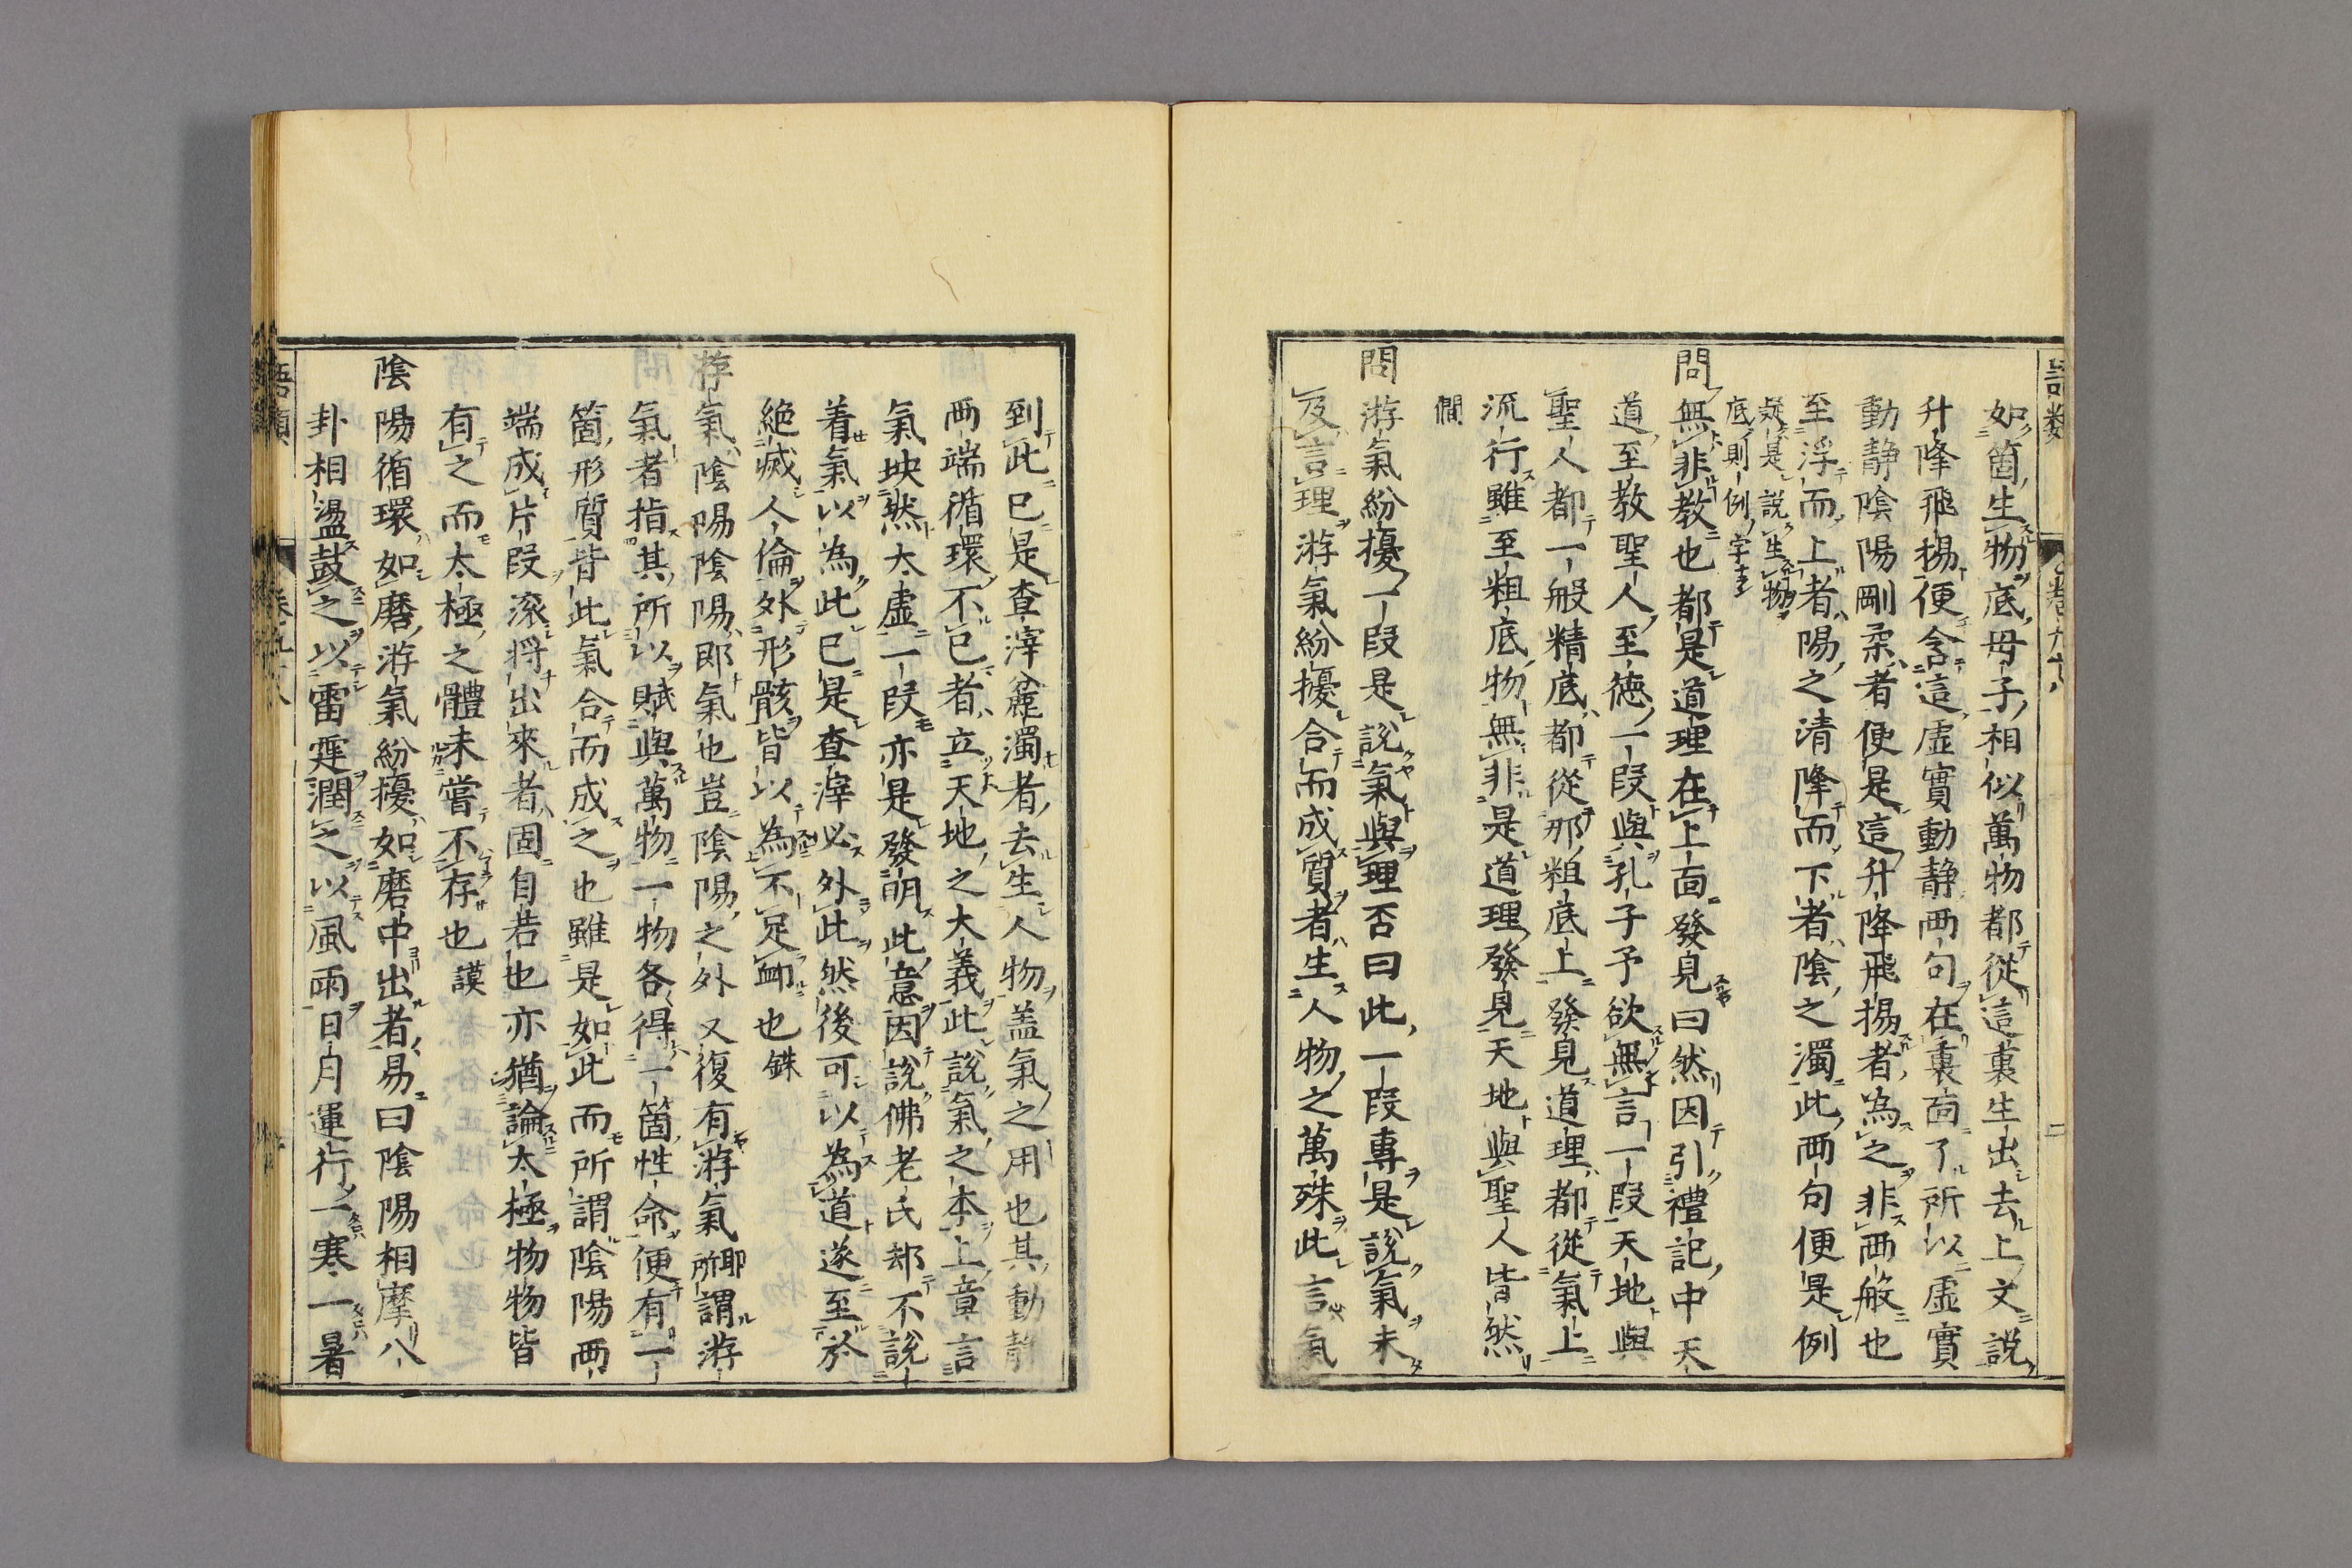 如箇生物底母子相似萬物都從這裏生出去上文説
升降飛揚便含這虛實動靜两句在裏面了所以虛實
動靜陰陽剛柔者便是這升降飛揚者為之非两般也
至浮而上者陽之清降而下者陰之濁此两句便是例
疑是説生物
底則例字
問無非教也都是道理在上面發見曰然因引禮記中天
道至教聖人至德一段與孔子予欲無言一段天地與
聖人都一般精底都從那粗底上發見道理都從氣上
流行雖至粗底物無非是道理發見天地與聖人皆然
僩
問游氣紛擾一段是説氣與理否曰此一段專是説氣未
及言理游氣紛擾合而成質者生人物之萬殊此言氣
到此已是查滓麄濁者去生人物盖氣之用也其動靜
两端循環不已者立天地之大義此説氣之本上章言
氣坱然太虛一段亦是發明此意因説佛老氏却不説
着氣以為此已是查滓必外此然後可以為道遂至於
絶滅人倫外形骸皆以為不足䘏也銖
游氣陰陽陰陽即氣也豈陰陽之外又復有游氣耶所謂游
氣者指其所以賦與萬物一物各得一箇性命便有一
箇形質皆此氣合而成之也雖是如此而所謂陰陽两
端成片段滚將出來者固自若也亦猶論太極物物皆
有之而太極之體未嘗不存也謨
陰陽循環如磨游氣紛擾如磨中出者易曰陰陽相摩八
卦相盪鼓之以雷霆潤之以風雨日月運行一寒一暑